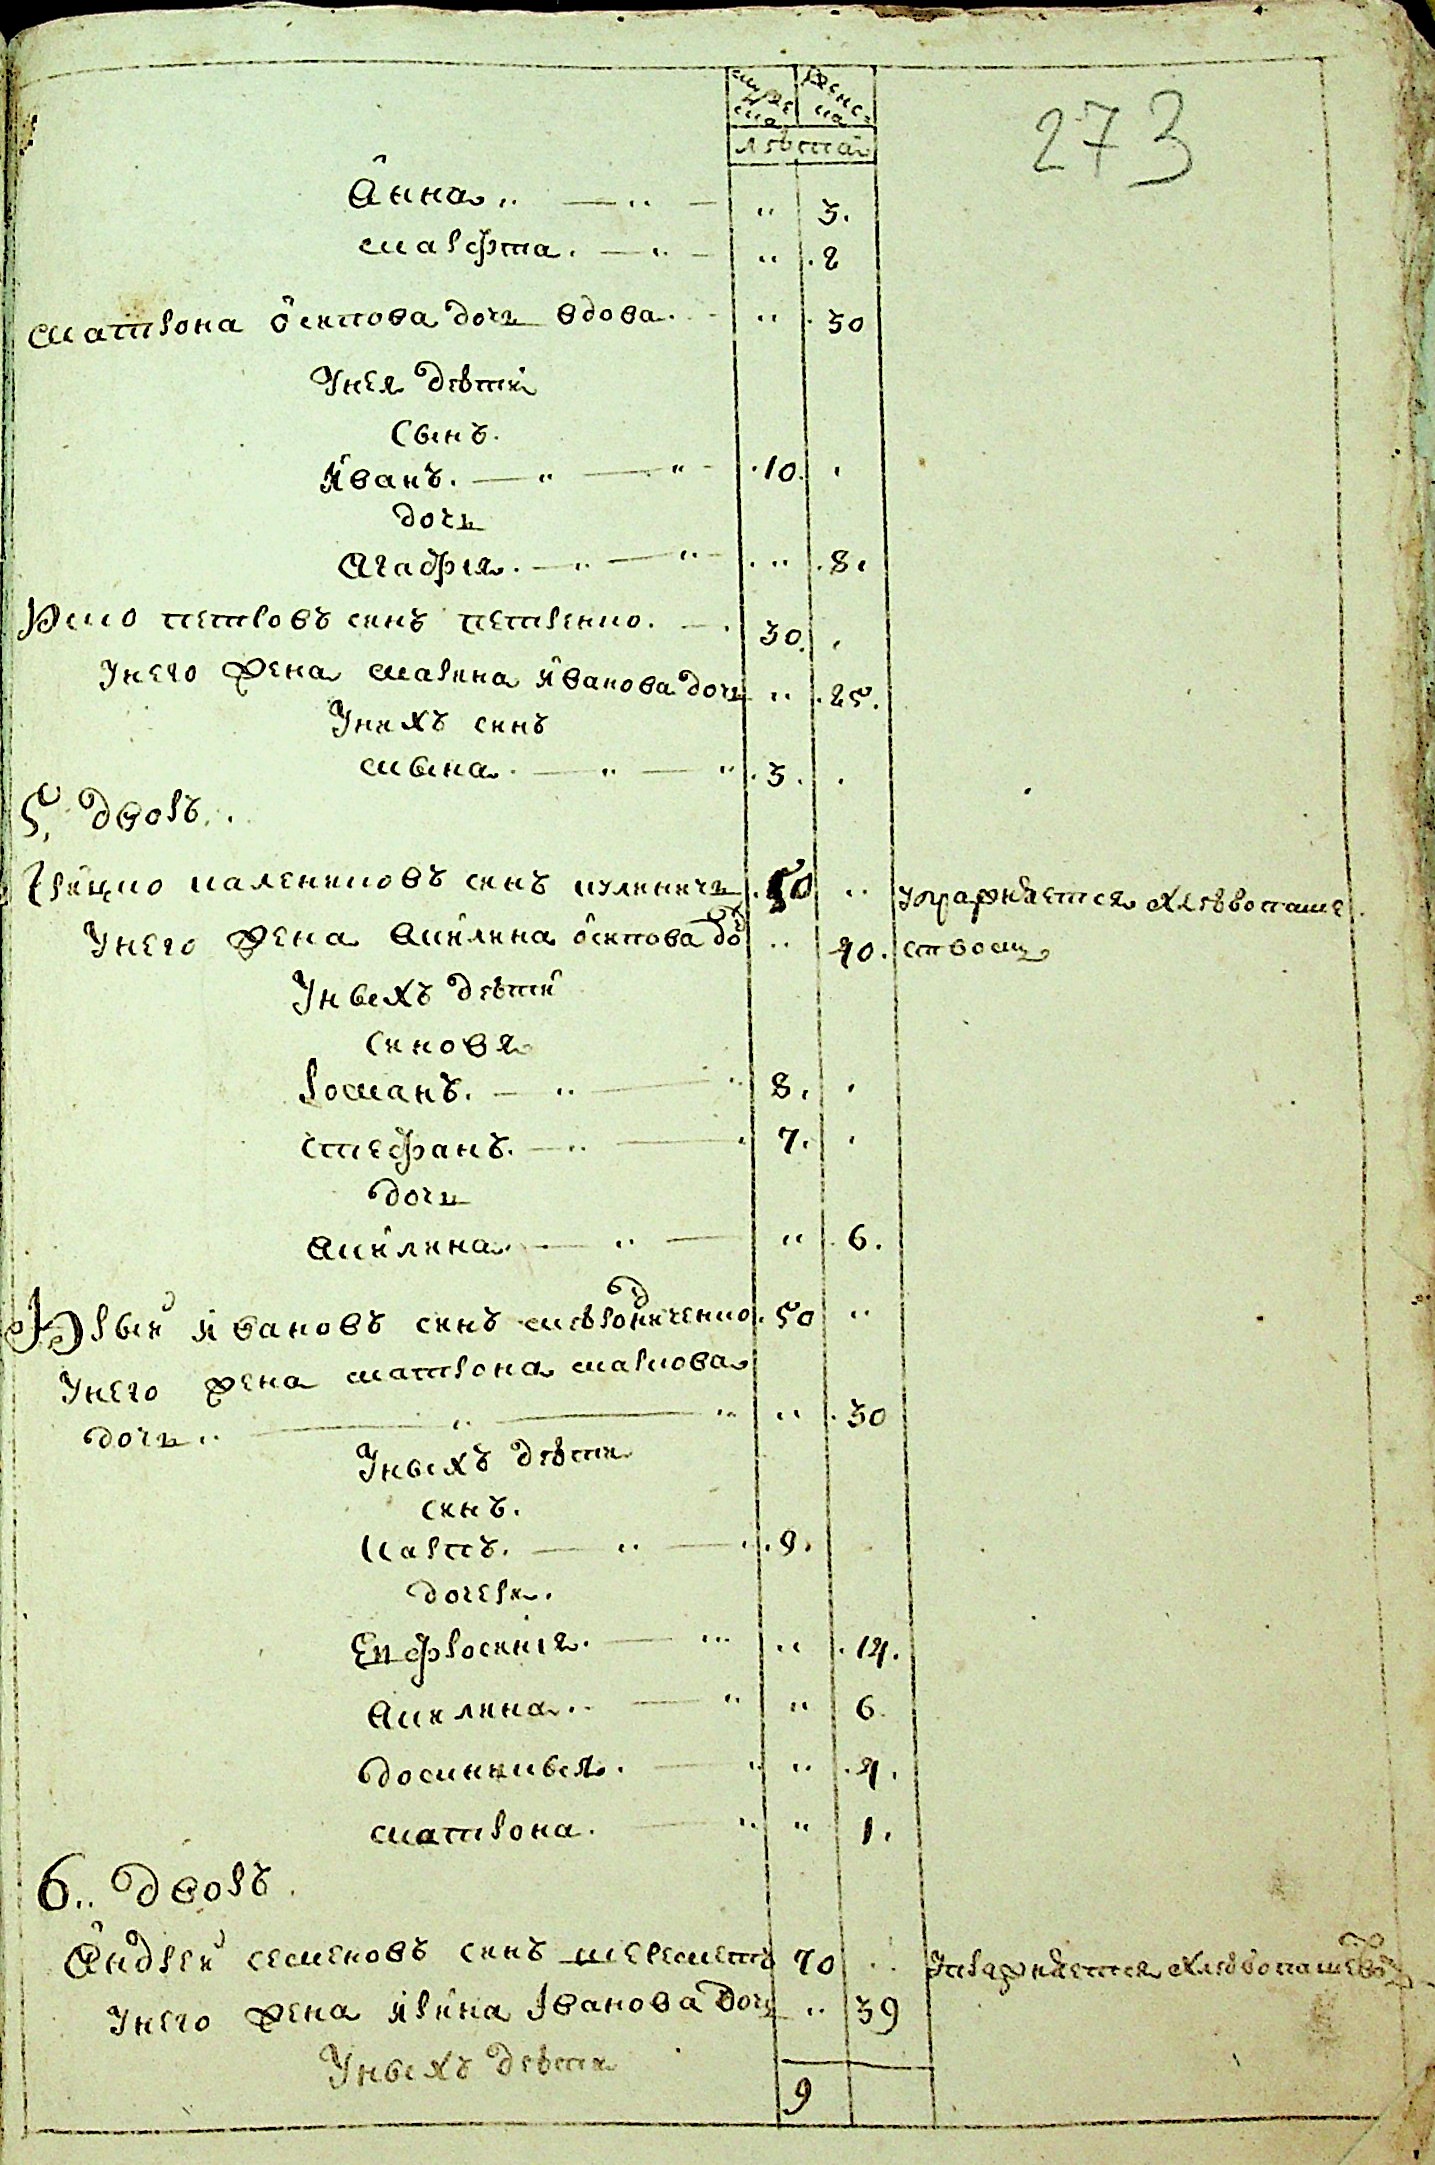 муже женс.
ска на
лѣта
273
Анна „ — „ — „ 3.
марѳта. — „ — „ .2
матрона осипова дочь вдова. „ .30
Унея дѣти
Сынъ.
Иванъ. — „ — „ .10. .
дочь
Агафия. — „ — „ .8.
петровъ синъ петренко. — . 30. .
Унего жена марина иванова дочь „ .25.
Унихъ синъ
микина. — „ — „ .3. .
5, дворъ.
Грицко калениковъ синъ кулиничь .50 „ упражняется хлѣбопаше
Унего жена акилина осипова до „ 40. ством
Унвихъ дѣти
Синовя
Романъ. — „ — „ 8. .
Стефанъ. — „ — . 7. .
дочь
акилина. — „ — „ .6.
Юрый ивановъ синъ .50 „
Унего жена матрона маркова
дочь „ — „ — „ „ .30
Унвихъ дѣти
синъ.
Карпъ. — „ — .9.
дочери.
Епфросиния. — „ „ .14.
акилина. — „ „ 6.
досинкивя. — „ „ .4.
матрона. — „ „ 1.
6.. дворъ.
Андрей семеновъ синъ шеремет 40 „ упражняется хлѣбопашевом
Унего жена ирина Iванова дочь „ 39
Унвихъ дѣти
9